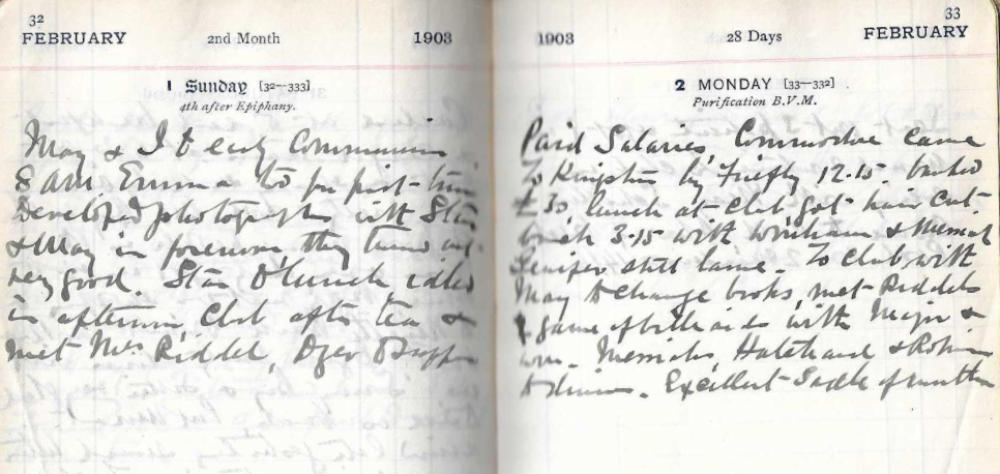 32
FEBRUARY 2nd Month 1903
1 Sunday [32—333]
4th after Epiphany.
May & I to early Communion
8 am. Emma to for first-time
Developed photographs with Stan
& May in forenoon, they turned out
very good. Stan to lunch, idled
in afternoon, Club after tea &
met Mrs Riddel, Dyer to supper
33
1903 28 Days FEBRUARY
2 MONDAY [33—332]
Purification B.V.M.
Paid Salaries, Commodore came
to Kingston by Firefly 12.15. banked
£30, lunch at Club, got hair cut.
back 3.15 with &
Juniper still lame. To Club with
May to change books, met Riddels
game of billiards with Major &
won. Hatch and & Robin
to dinner. Excellent Saddle of mutton